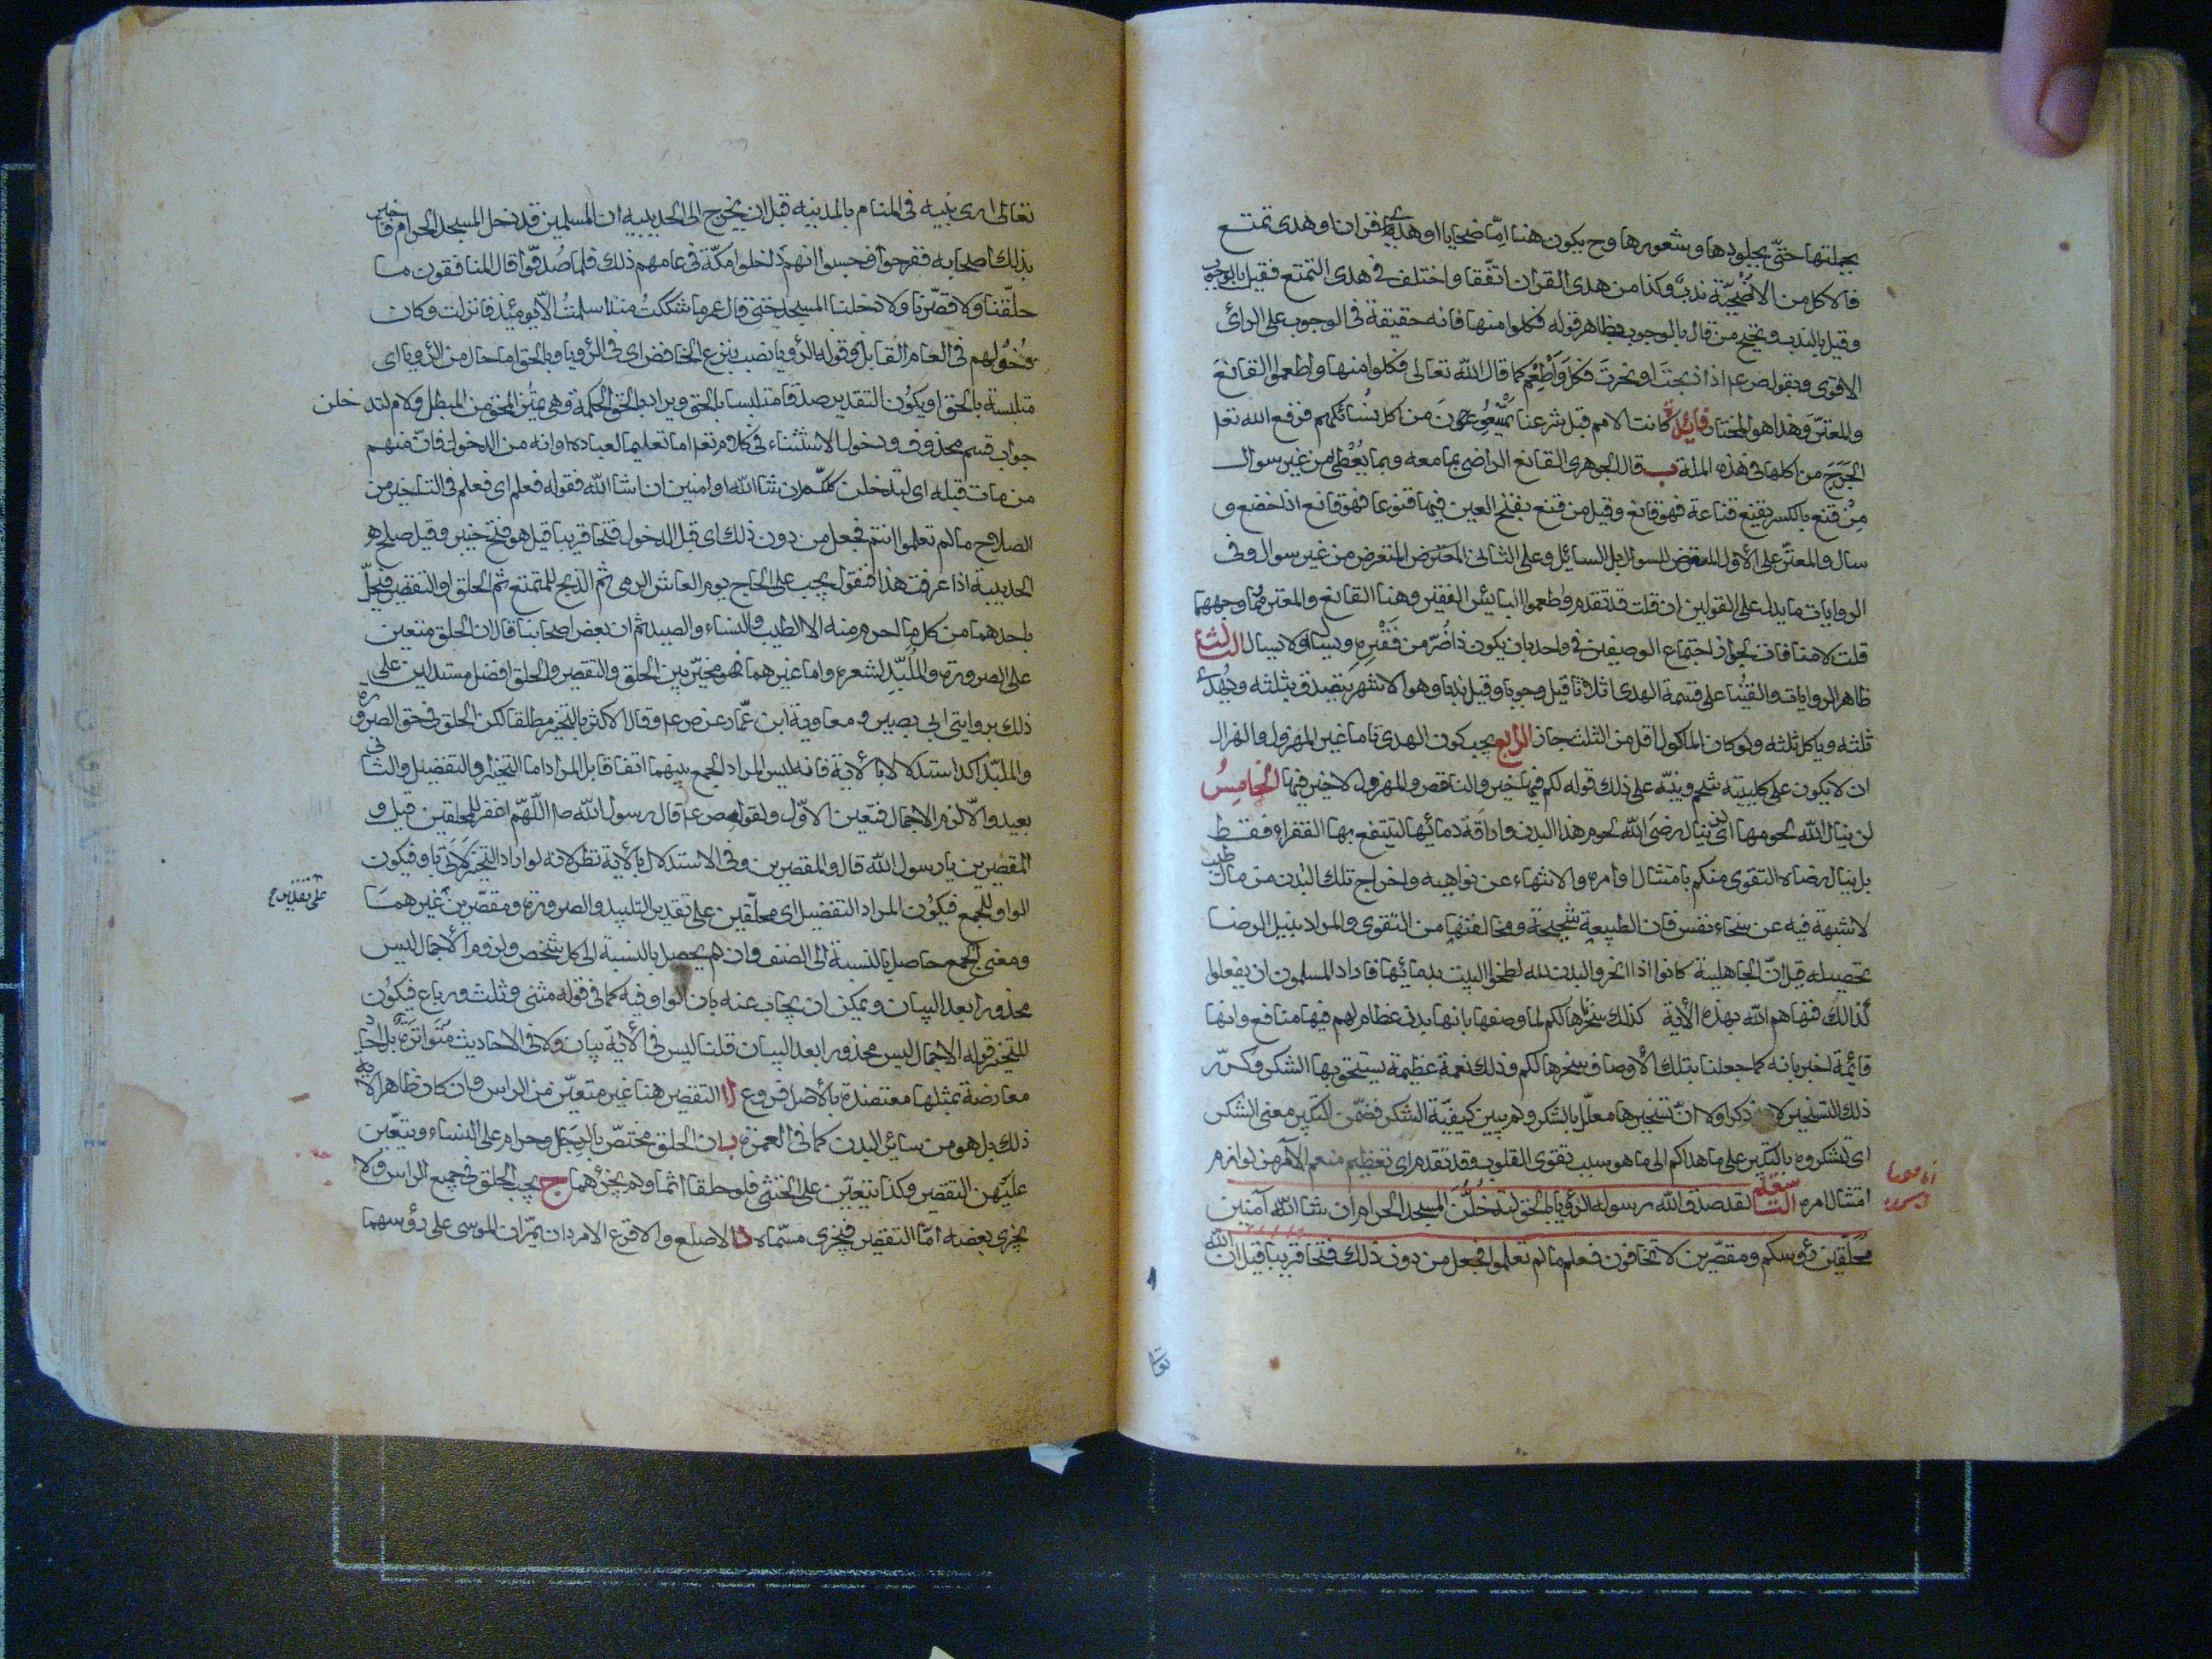 بجملتها حتّى بجلودها وشعورها وح يكون هنا امّا ضحايا او هدى قران او هدى تمتع
فالاكل من الاضُحِيّة ندبٌ وكذا من هدى القران اتّفقا واختلف فى هدى التمتع فقيل بالوجوب
وقيل بالندب ويحتج من قال بالوجوب بظاهر قوله فكلوا منها فانه حقيقة فى الوجوب على الرأى
الاقوى وبقول ص ع اذا ذبحتَ او نحرتَ فكُلْ وَاَطْعِمْ كما قال الله تعالى فكلوا منها واطعموا القانعَ
والمعترّ وهذا هو المختار فائدة كانت الامم قبل شرعنا يمتنعون من اكل نُسُائكهم فرفع الله تعا
الحَرَجَ من اكلها فى هذه الملة ب قال الجوهرى القانع الراضى بما معه وبما يُعْطى من غير سوال
مِنْ قنع بالكسر يقنع قناعة فهو قانع وقيل من قنع بفتح العين فيهما قنوعا فهو قانع اذا خضع و
سال والمعترّ على الاوّل المتعرض للسوال بل السائل وعلى الثانى المعترض المتعرض من غير سوال وفى
الروايات ما يدل على القولين ان قلت قد تقدم واطعموا البائس الفقير وهنا القانع والمعتر فما وجههما
قلت لا منافاة لجواز اجتماع الوصفين فى واحد بان يكون ذا ضُرّ من فَقْرِه ويسال او لا يسال الثالث
ظاهر الروايات والفتُيا على قسمة الهدى اثلاثا قيل وجوبا وقيل ندبا وهو الاشهر يتصدق بثلثه ويُهدى
ثلثه وياكل ثلثه ولو كان الماكول اقل من الثلث جاز الرابع يجب كون الهدى تاما غير المهزول والهزال
ان لا يكون على كليتيه شحم وينبّه على ذلك قوله لكم فيها خير والناقص والمهزول لا خير فيهما الخامِسُ
لن ينال الله لحومها اى لن ينال رضَى الله لحوم هذا البدن واراقة دمائها لينتفع بها الفقراء فقط
بل ينال رضاه التقوى منكم بامتثال اوامره والانتهاء عن نواهيه واخراج تلك البُدن من مال طيب
لا شبهة فيه عن سخاء نفس فان الطبيعة شحيحة ومخالفتها من التقوى والمراد بنيل الرضا
تحصيله قيل انّ الجاهلية كانوا اذا انحروا البدن لله لطخوا البيت بدمائها فاراد المسلمون ان يفعلوا
كذالك فنهاهم الله بهذه الأية كذلك سخرناها لكم لما وصفها بانها بدن عظام لهم فيها منافع وانها
قائمة اخبر بانه كما جعلنا بتلك الأوصاف سخرها لكم وذلك نعمة عظيمة يستحق بها الشكر وكرّر
ذلك التسخير لانه ذكر اولا انّ تسخيرها معلّل بالشكر ولم يبين كيفيّة الشكر فضمّن التكبير معنى الشكر
اى تشكروه بالتكبير على ما هداكم الى ما هو سبب تقوى القلوب وقد تقدم اى تعظيم منعم الآمر من لوازم
امتثال امره التاسعة لقد صدق الله رسوله الرؤيا بالحق لتدخُلنَّ المسجد الحرام ان شا الله آمنين
محلّقين رؤسكم ومقصّرين لا تخافون فعلم ما لم تعلموا فجعل من دون ذلك فتحا قريبا قيل ان الله
تعالى ارى نبيه فى المنام بالمدينه قبل ان يخرج الى الحديبيه ان المسلمين قد دخل المسجد الحرام فاخبر
بذلك اصحابه ففرحوا فحسبوا انهم دخلوا مكّة فى عامهم ذلك فلما صُدّوا قال المنافقون ما
حلّقنا ولا قصّرنا ولا دخلنا المسجد حتى قال عمر ما شككتُ منذ اسلمتُ الّا يومئذ فانزلت وكان
دُخُولهم فى العام القابل وقوله الرؤيا نصب بنزع الخافض اى فى الرؤيا وبالحق اما حال من الرؤيا اى
متلبسة بالحق او يكون التقدير صدقا متلبسا بالحق ويراد بالحق الحكمة وهى تميّز المحق من المبطل ولام لتدخلن
جواب قسم محذوف ودخول الاستثناء فى كلامه تعا اما تعليما لعباده او انه من الدخول فانّ منهم
من مات قبله اى لتدخلن كلكم ان شا الله او امنين ان شا الله فقوله فعلم اى فعلم فى التاخير من
الصلاح ما لم تعلموا انتم فجعل من دون ذلك اى قبل الدخول فتحا قريبا قيل هو فتح خيبر وقيل صلح
الحديبية اذا عرفت هذا فنقول يجب على الحاج يوم العاشر الرمى ثم الذبح للمتمتع ثم الحلق او التقصير فيحلّ
باحدهما من كل ما احرم منه الا الطيب والنساء والصيد ثم ان بعض اصحابنا قال ان الحلق متعين
على الصرورة والمُلبّدِ لشعره واما غيرهما فهو مخيّر بين الحلق والتقصير والحلق افضل مستدلين على
ذلك بروايتى ابى بصير ومعاوية ابن عمّار عن ص ع وقال الاكثر بالتخيير مطلقا لكن الحلق فى حق الصرورة
والملبّد اكد استدلالا بالأية فانه ليس المراد الجمع بينهما اتفاقا بل المراد اما التخيير او التفضيل والثانى
بعيد والّا لزم الاجمال فتعين الاوّل ولقوله ص ع قال رسول الله ص اللّهمّ اغفر للمحلقين قيل و
المقصرين يا رسول الله قال والمقصرين وفى الاستدلال بالأية نظر لانه لو اراد التخيير لَاَتى باو فيكون
الواو للجمع فيكون المراد التفضيل اى محلّقين على تقدير التلبيد والصرورة ومقصّرين غيرهما
على تقدير
ومعنى الجمع حاصل بالنسبة الى الصنف وان لم يحصل بالنسبة الى كل شخص ولزوم الأجمال ليس
محذورا بعد البيان ويمكن ان يجاب عنه بان الواو فيه كما فى قوله مثنى وثلث ورباع فيكون
للتخيير قوله الاجمال ليس محذورا بعد البيان قلنا ليس فى الأية بيان ولا فى الاحاديث مُتَواترة بل احاد
معارضة بمثلها معتضدة بالأصل فروع ا التقصير هنا غير متعيّن من الراس وان كان ظاهر الأية
ذلك بل هو من سائر البدن كما فى العمرة ب ان الحلق مختصّ بالرجل وحرام على النساء ويتعيّن
عليهن التقصير وكذا يتعيّن على الخنثى فلو حلقا اثما ولم يجزئهما ج يجب الحلق فى جميع الراس ولا
يجزى بعضه امّا التقصير فيجزى مسمّاه د الاصلع والاقرع الامردان يمرّان الموسى على رؤسهما